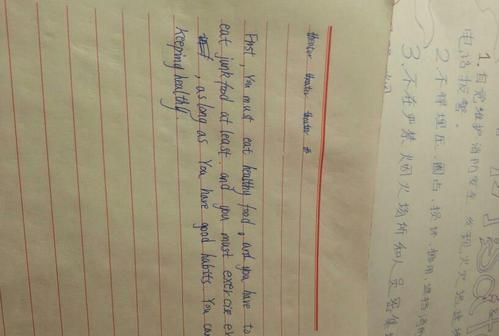 theater theater theater
First, You must eat healthy food, and you have to
eat junk food at least. and you must exercise
, as long as You have good habits. You can
keeping healthy.
1. 自觉维护消防安全, 发现火灾
电话报警。
2. 不得埋压、圈占、损坏、挪用、遮挡消
3. 不在严禁烟火场所和人员密集